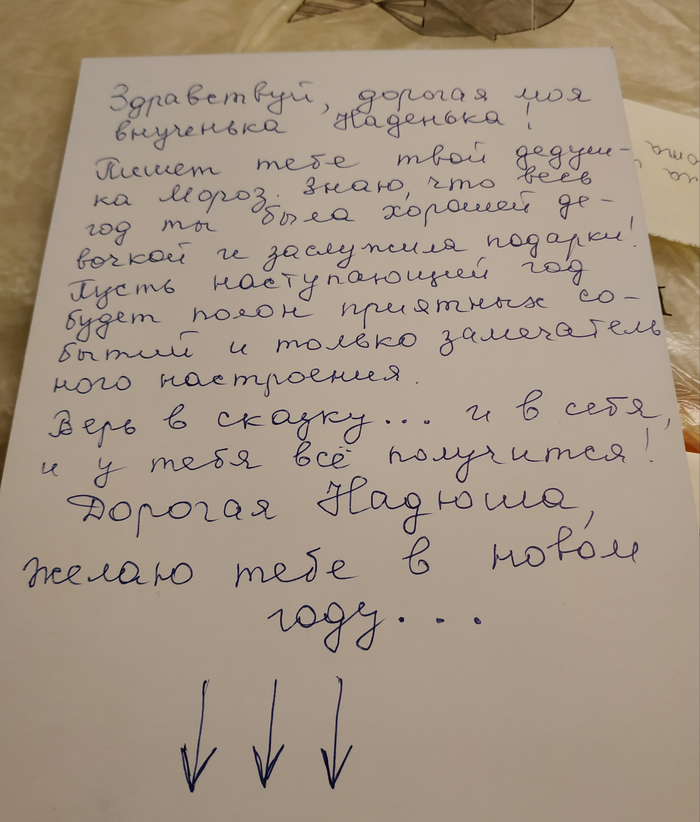 Здравствуй, дорогая моя
внученька Наденька!
Пишет тебе твой дедуш-
ка Мороз. Знаю, что весь
год ты была хорошей де-
вочкой и заслужила подарки!
Пусть наступающий год
будет полон приятных со-
бытий и только замечатель
ного настроения.
Верь в сказку... и в себя,
и у тебя всё получится!
Дорогая Надюша,
желаю тебе в новом
году...